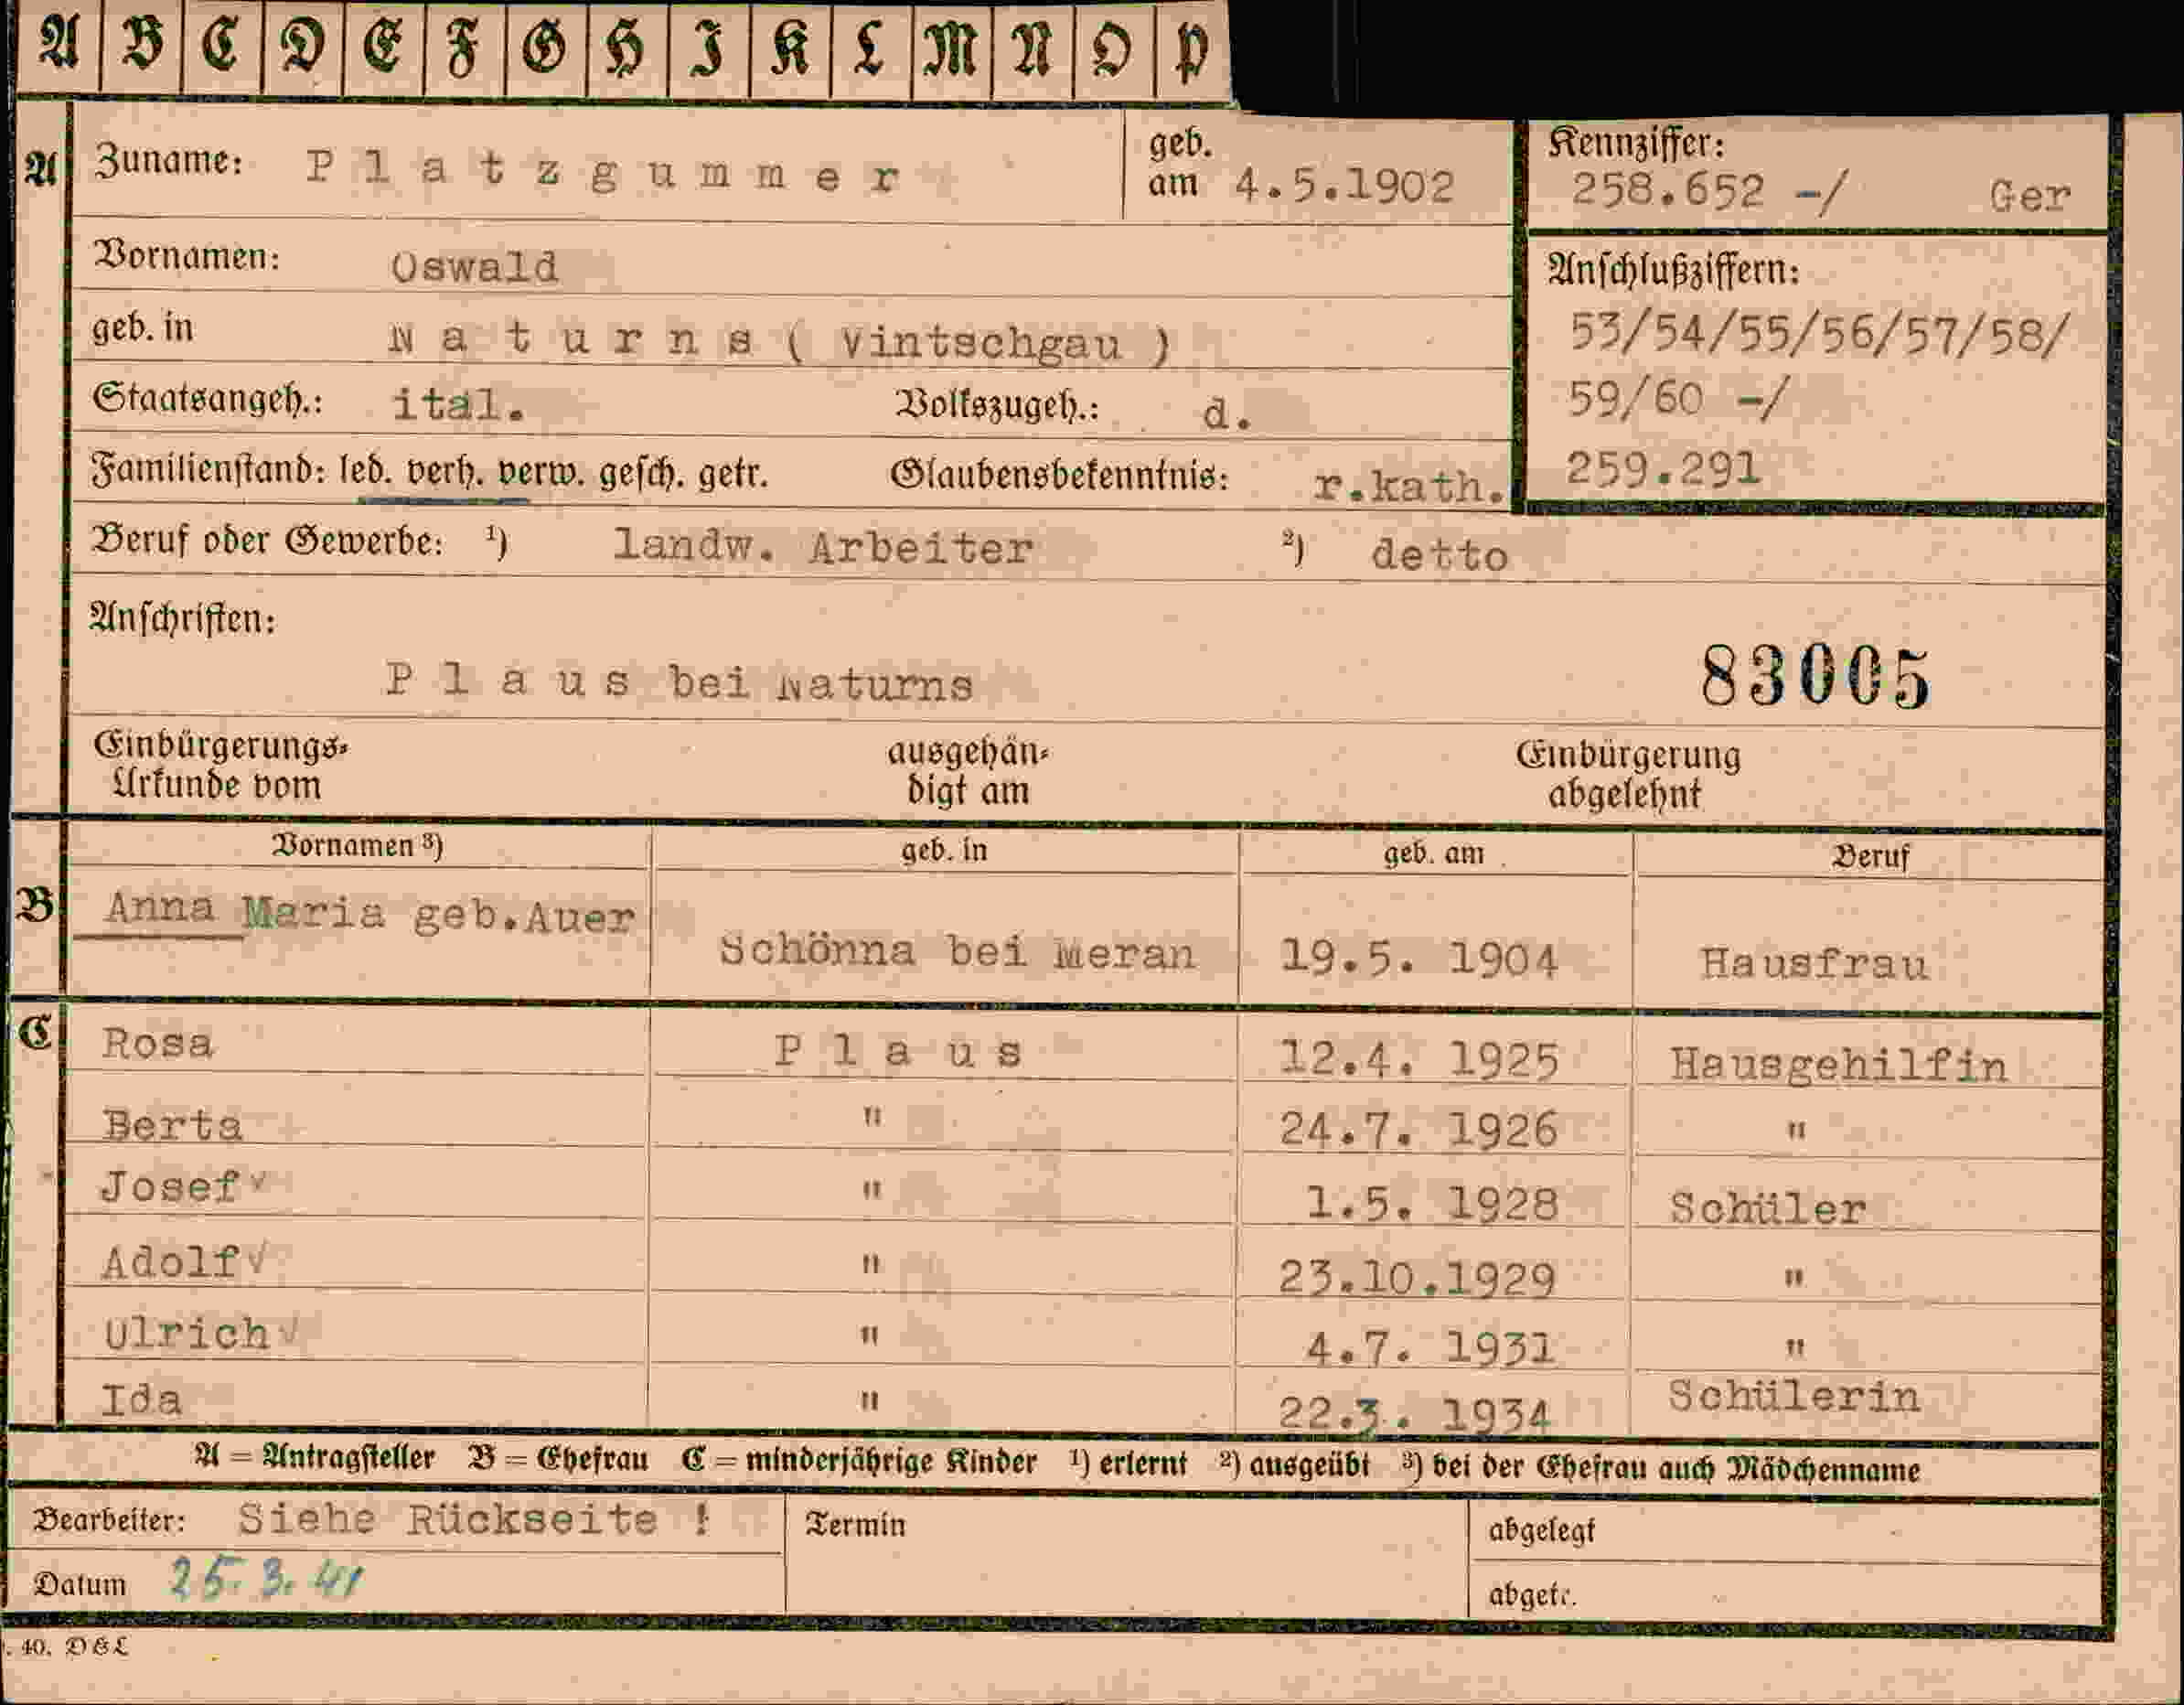 A B C D E F G H I K L M N O P
A Zuname: Platzgummer geb. am 4.5.1902
Kennziffer:
258.652 -/ Ger
Vornamen: Oswald
Anschlußziffern:
53/54/55/56/57/58/
59/60 -/
259.291
geb. in Naturns ( Vintschgau )
Staatsangeh.: ital. Volkszugeh.: d.
Familienstand: led. verh. verw. gesch. getr. Glaubensbekenntnis: r.kath.
Beruf oder Gewerbe: ¹) landw. Arbeiter ²) detto
Anschriften:
Plaus bei Naturns 83005
Einbürgerungs- ausgehän- Einbürgerung
Urkunde vom digt am abgelehnt
Vornamen ³) geb. in geb. am Beruf
B Anna Maria geb.Auer Schönna bei Meran 19.5. 1904 Hausfrau
C Rosa Plaus 12.4. 1925 Hausgehilfin
Berta " 24.7. 1926 "
Josef √ " 1.5. 1928 Schüler
Adolf √ " 23.10.1929 "
Ulrich √ " 4.7. 1931 "
Ida " 22.3. 1934 Schülerin
A = Antragsteller B = Ehefrau C = minderjährige Kinder ¹) erlernt ²) ausgeübt ³) bei der Ehefrau auch Mädchenname
Bearbeiter: Siehe Rückseite ! Termin abgelegt
Datum 25.3.41 abgetr.
. 40. DEL